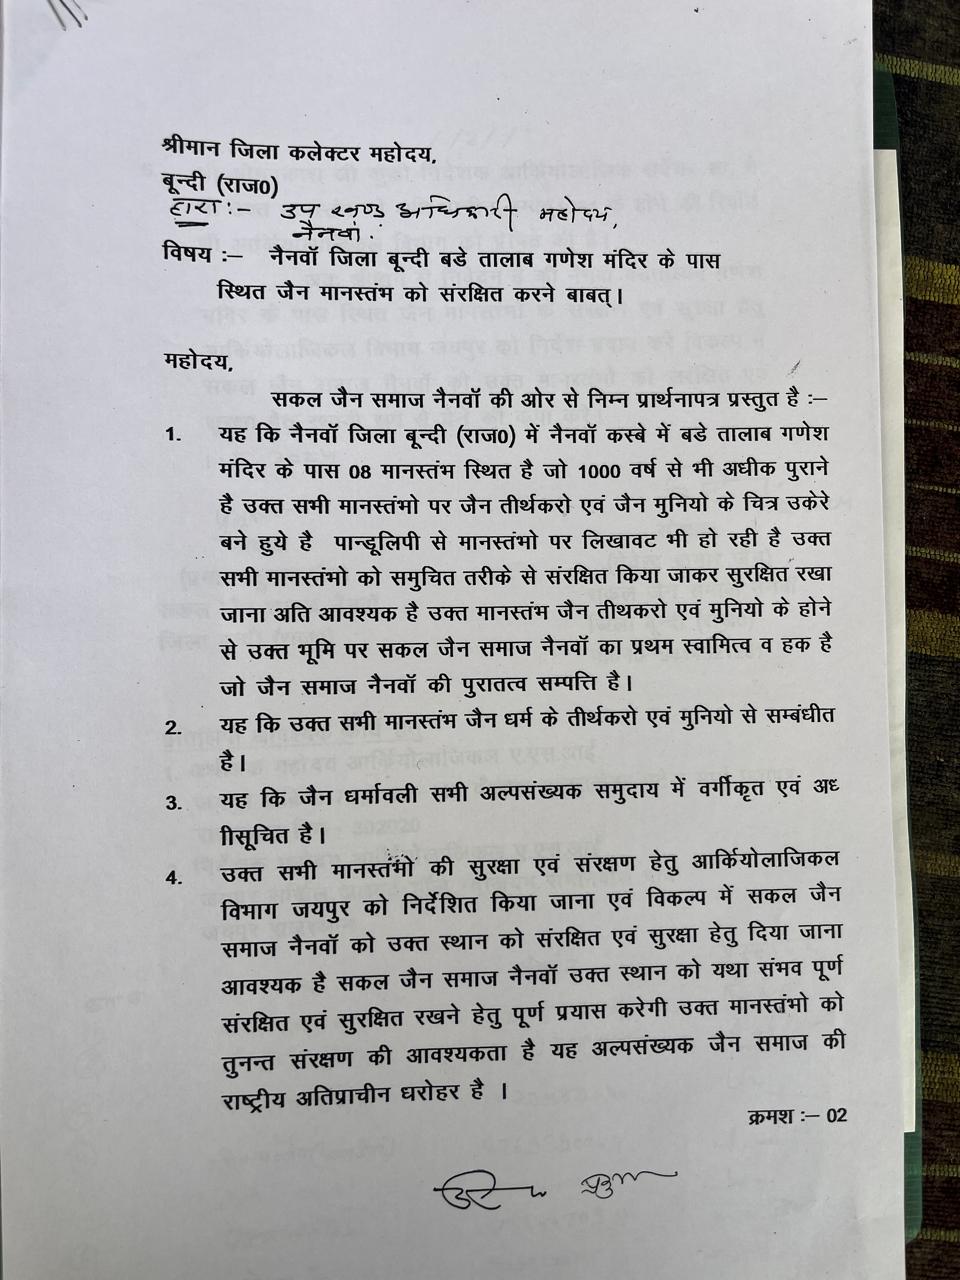 श्रीमान जिला कलेक्टर महोदय,
बून्दी (राज0)
द्वारा :- उप खण्ड अधिकारी महोदय,
नैनवां.
विषय :- नैनवॉ जिला बून्दी बडे तालाब गणेश मंदिर के पास
स्थित जैन मानस्तंभ को संरक्षित करने बाबत्।
महोदय,
सकल जैन समाज नैनवॉ की ओर से निम्न प्रार्थनापत्र प्रस्तुत है :-
1. यह कि नैनवॉ जिला बून्दी (राज0) में नैनवॉ कस्बे में बडे तालाब गणेश
मंदिर के पास 08 मानस्तंभ स्थित है जो 1000 वर्ष से भी अधीक पुराने
है उक्त सभी मानस्तंभो पर जैन तीर्थकरो एवं जैन मुनियो के चित्र उकेरे
बने हुये है पान्डूलिपी से मानस्तंभो पर लिखावट भी हो रही है उक्त
सभी मानस्तंभो को समुचित तरीके से संरक्षित किया जाकर सुरक्षित रखा
जाना अति आवश्यक है उक्त मानस्तंभ जैन तीथकरो एवं मुनियो के होने
से उक्त भूमि पर सकल जैन समाज नैनवॉ का प्रथम स्वामित्व व हक है
जो जैन समाज नैनवॉ की पुरातत्व सम्पत्ति है।
2. यह कि उक्त सभी मानस्तंभ जैन धर्म के तीर्थकरो एवं मुनियो से सम्बंधीत
है।
3. यह कि जैन धर्मावली सभी अल्पसंख्यक समुदाय में वर्गीकृत एवं अध
िसूचित है।
4. उक्त सभी मानस्तंभो की सुरक्षा एवं संरक्षण हेतु आर्कियोलाजिकल
विभाग जयपुर को निर्देशित किया जाना एवं विकल्प में सकल जैन
समाज नैनवॉ को उक्त स्थान को संरक्षित एवं सुरक्षा हेतु दिया जाना
आवश्यक है सकल जैन समाज नैनवॉ उक्त स्थान को यथा संभव पूर्ण
संरक्षित एवं सुरक्षित रखने हेतु पूर्ण प्रयास करेगी उक्त मानस्तंभो को
तुनन्त संरक्षण की आवश्यकता है यह अल्पसंख्यक जैन समाज की
राष्ट्रीय अतिप्राचीन धरोहर है ।
क्रमश :- 02